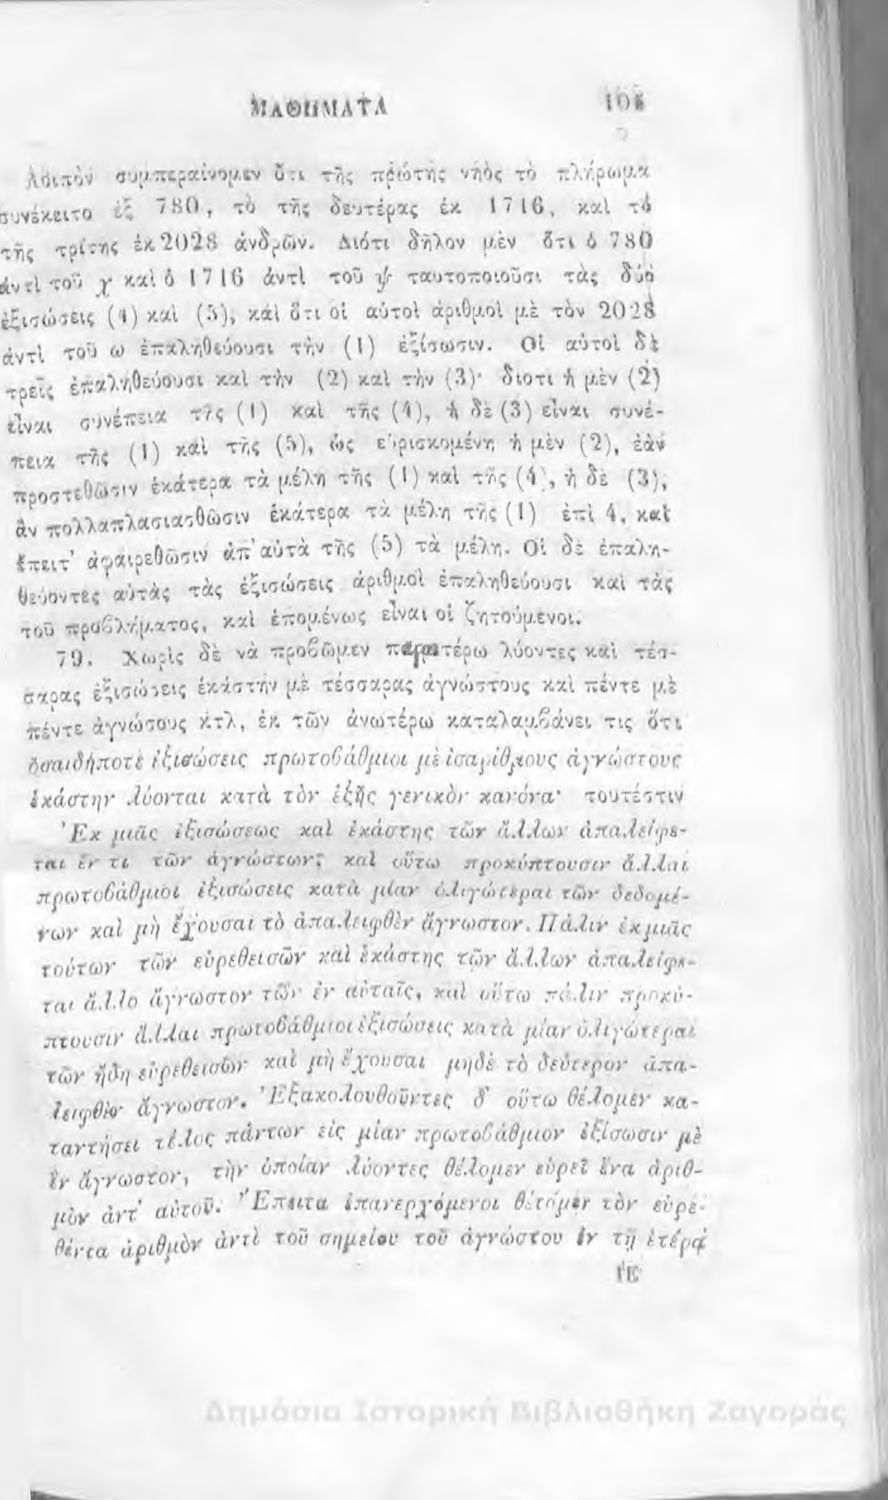 ΜΑΘΗΜΑΤΑ 105
Λοιπὸν συμπεραίνομεν ὅτι τῆς πρώτης νηὸς τὸ πλήρωμα
συνέκειτο ἐξ 780, τὸ τῆς δευτέρας ἐκ 1716, καὶ τὸ
τῆς τρίτης ἐκ 2028 ἀνδρῶν. Διότι δῆλον μὲν ὅτι ὁ 780
ἀντὶ τοῦ χ καὶ ὁ 1716 ἀντὶ τοῦ ψ ταυτοποιοῦσι τὰς δύο
ἐξισώσεις (4) καὶ (5), καὶ ὅτι οἱ αὐτοὶ ἀριθμοὶ μὲ τὸν 2028
ἀντὶ τοῦ ω ἐπαληθεύουσι τὴν (1) ἐξίσωσιν. Οἱ αὐτοὶ δὲ
τρεῖς ἐπαληθεύουσι καὶ τὴν (2) καὶ τὴν (3)· διοτι ἡ μὲν (2)
εἶναι συνέπεια τῆς (1) καὶ τῆς (4), ἡ δὲ (3) εἶναι συνέ-
πεια τῆς (1) καὶ τῆς (5), ὡς εὑρισκομένη ἡ μὲν (2), ἐὰν
προστεθῶσιν ἑκάτερα τὰ μέλη τῆς (1) καὶ τῆς (4), ἡ δὲ (3),
ἂν πολλαπλασιασθῶσιν ἑκάτερα τὰ μέλη τῆς (1) ἐπὶ 4, καὶ
ἔπειτ' ἀφαιρεθῶσιν ἀπ' αὐτὰ τῆς (5) τὰ μέλη. Οἱ δὲ ἐπαλη-
θεύοντες αὐτὰς τὰς ἐξισώσεις ἀριθμοὶ ἐπαληθεύουσι καὶ τὰς
τοῦ προβλήματος, καὶ ἑπομένως εἶναι οἱ ζητούμενοι.
79. Χωρὶς δὲ νὰ προβῶμεν παραιτέρω λύοντες καὶ τέσ-
σαρας ἐξισώσεις ἑκάστην μὲ τέσσαρας ἀγνώστους καὶ πέντε μὲ
πέντε ἀγνώσους κτλ, ἐκ τῶν ἀνωτέρω καταλαμβάνει τις ὅτι
ὁσαιδήποτε ἐξισώσεις πρωτοβάθμιοι μὲ ἰσαρίθμους ἀγνώστους
ἑκάστην λύονται κατὰ τὸν ἑξῆς γενικὸν κανόνα· τουτέστιν
Ἐκ μιᾶς ἐξισώσεως καὶ ἑκάστης τῶν ἄλλων ἀπαλείφε-
ται ἕν τι τῶν ἀγνώστων, καὶ οὕτω προκύπτουσιν ἄλλαι
πρωτοβάθμιοι ἐξισώσεις κατὰ μίαν ὀλιγώτεραι τῶν δεδομέ-
νων καὶ μὴ ἔχουσαι τὸ ἀπαλειφθὲν ἄγνωστον. Πάλιν ἐκ μιᾶς
τούτων τῶν εὑρεθεισῶν καὶ ἑκάστης τῶν ἄλλων ἀπαλείφε-
ται ἄλλο ἄγνωστον τῶν ἐν αὐταῖς, καὶ οὕτω πάλιν προκύ-
πτουσιν ἄλλαι πρωτοβάθμιοι ἐξισώσεις κατὰ μίαν ὀλιγώτεραι
τῶν ἤδη εὑρεθεισῶν καὶ μὴ ἔχουσαι μηδὲ τὸ δεύτερον ἀπα-
λειφθὲν ἄγνωστον. Ἐξακολουθοῦντες δ' οὕτω θέλομεν κα-
ταντήσει τέλος πάντων εἰς μίαν πρωτοβάθμιον ἐξίσωσιν μὲ
ἓν ἄγνωστον, τὴν ὁποίαν λύοντες θέλομεν εὑρεῖ ἕνα ἀριθ-
μὸν ἀντ' αὐτοῦ. Ἔπειτα ἐπανερχόμενοι θέτομεν τὸν εὑρε-
θέντα ἀριθμὸν ἀντὶ τοῦ σημείου τοῦ ἀγνώστου ἐν τῇ ἑτέρᾳ
ΙΕ
Δημόσια Ιστορική Βιβλιοθήκη Ζαγοράς